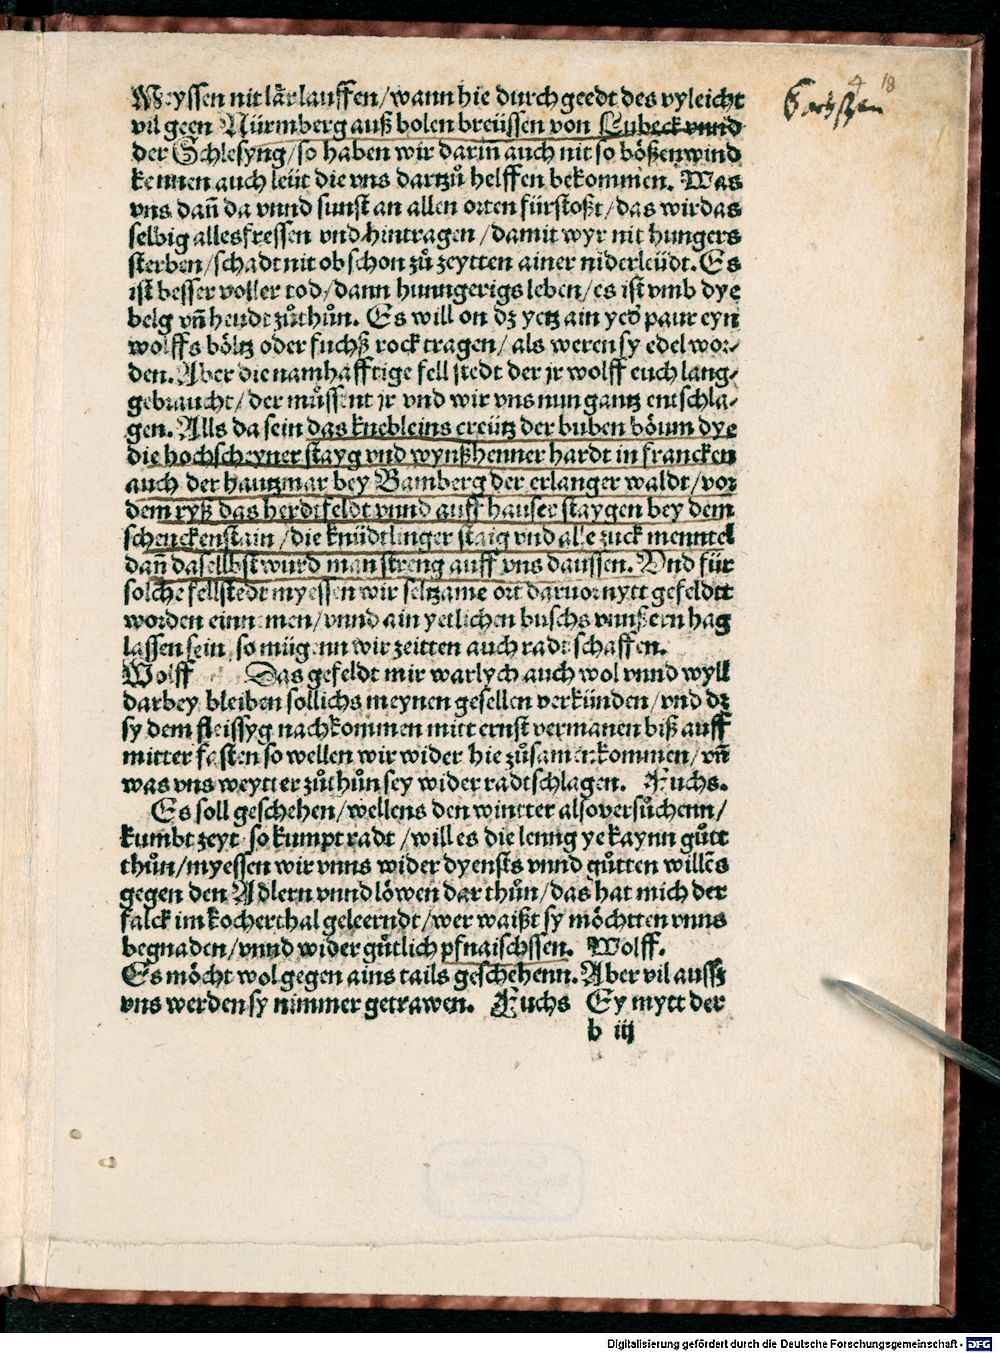 4 18
Sachssen
Meyssen nit lārlauffen/wann hie durch geedt des vyleicht
vil geen Nürmberg auß holen breüssen von Lubeck vnnd
der Schlesyng/so haben wir darin̄ auch nit so bößen wind
kennen auch leüt die vns dartzů helffen bekommen. Was
vns dan̄ da vnnd sunst an allen orten fürstoßt/das wir das
selbig alles fressen vnd hintragen/damit wyr nit hungers
sterben/schadt nit ob schon zů zeytten ainer niderleüdt. Es
ist besser voller tod/dann hunngerigs leben/es ist vmb dye
belg vn̄ heudt zůthůn. Es will on dz yetz ain yed̕ paur eyn
wolffs böltz oder fuchß rock tragen/als weren sy edel wor⸗
den. Aber die namhafftige fell stedt der jr wolff euch lang⸗
gebraucht/der můssent jr vnd wir vns nun gantz entschla⸗
gen. Alls da sein das knebleins creütz der buben böum dye
die hochscheyner stayg vnd wynßhenner hardt in francken
auch der hautzmar bey Bamberg der erlanger waldt/vor
dem ryß das herdtfeldt vnnd auff hauser staygen bey dem
schenckenstain/die knüdtlinger staig vnd alle zuck menntel
dan̄ daselbst wurd man streng auff vns daussen. Vnd für
solche fellstedt myessen wir seltzame ort daruor nytt gefeldtt
worden einnemen/vnnd ain yetlichen buschs vnnß ein hag
lassen sein, so mügenn wir zeitten auch radt schaffen.
Wolff Das gefeldt mir warlych auch wol vnnd wyll
darbey bleiben sollichs meynen gesellen verkünden/vnd dz
sy dem fleissyg nachkommen mitt ernst vermanen biß auff
mitter fasten so wellen wir wider hie zůsamenkommen/vn̄
was vns weytter zůthůn sey wider radtschlagen. Fuchs.
Es soll geschehen/wellens den wintter also versůchenn/
kumbt zeyt so kumpt radt/will es die lenng ye kaynn gůtt
thůn/myessen wir vnns wider dyensts vnnd gůtten willēs
gegen den Adlern vnnd löwen dar thůn/das hat mich der
falck im kocherthal geleerndt/wer waißt sy möchtten vnns
begnaden/vnnd wider gůtlich pfnaischssen. Wolff.
Es möcht wol gegen ains tails geschehenn. Aber vil aussz
vns werden sy nimmer getrawen. Fuchs Ey mytt der
b iij
Digitalisierung gefördert durch die Deutsche Forschungsgemeinschaft - DFG